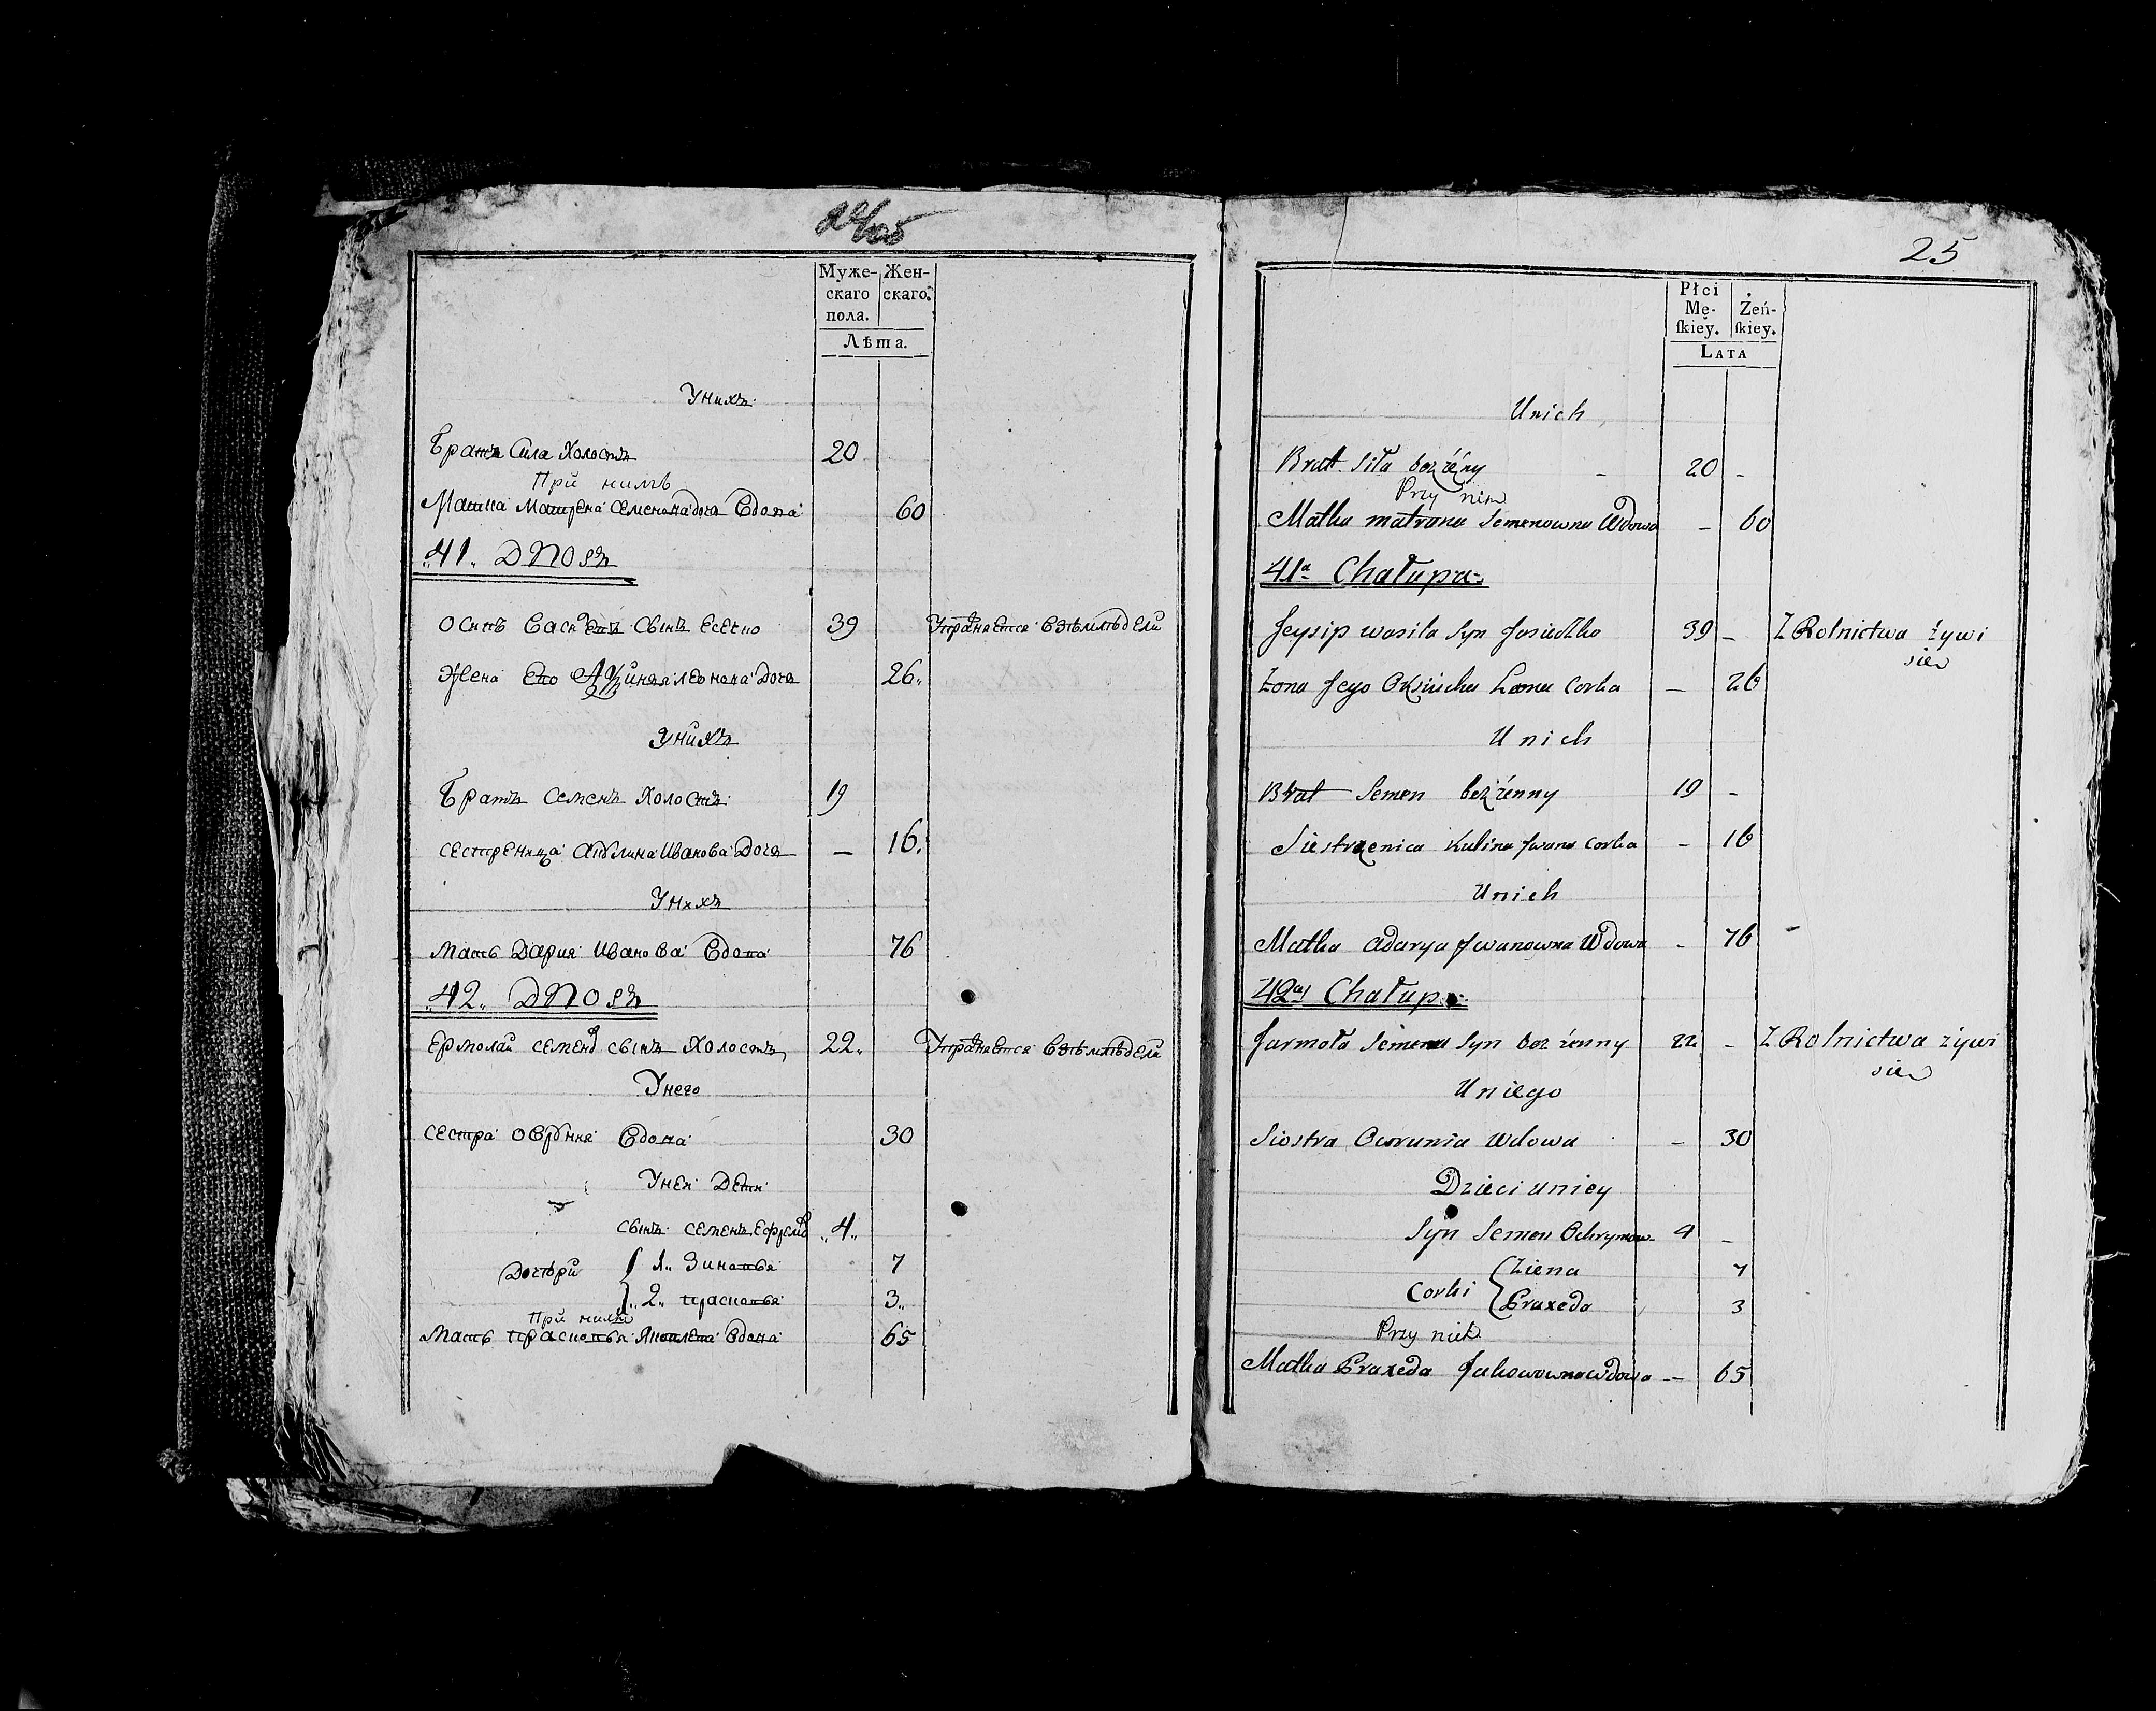 Муже-
скаго
пола.
Жен-
скаго.
Лѣта.
Унихъ
Братъ Сила Холостъ 20
При нимъ
Матка Матрена Семенова дочъ Вдова 60
„41„ Дворъ
Осипъ Васи Сынъ 39 Упражняется Въземлѣдели
Жена Его Леонова Дочъ 26„
Унихъ
Братъ Семенъ Холостъ 19
Сестреница Акулина Иванова Дочъ — 16.
Унихъ
Мать Дария Иванова Вдова 76
„42„ Дворъ
Ермолай Семено Сынъ Холостъ 22„ Упражняется Въземлѣдели
Унего
Сестра Оврыня Вдова 30
Уней Дети
Сынъ Семенъ Ефремо „4„
Дочѣри { 1„ Зиновья 7
„2„ Прасковья 3„
При нихъ
Мать Прасковья Яковлева Вдова 65
25
Płci
Mę-
ſkiey.
Żeń-
ſkiey.
LATA
Unich
Brat Siła bezżeny – 20 –
Przy nim
Matka Matrona Semenowna Wdowa – 60
41a Chałupa
Jeysip Wasila Syn Jasiuczko 39 – Z Rolnictwa żywi
sie
Żona Jego Oxiucha Leona Corka — 26
Unich
Brat Semen bezżenny 19 –
Siestrzenica Kulina Jwana Corka – 16
Unich
Matka Adarya Jwanowna Wdowa – 76 –
42a Chałupa
Jarmoła Semena Syn bezżenny 22 – Z Rolnictwa żywi
sie
Uniego
Siostra Owrunia Wdowa – 30
Dzieci uniey
Syn Semen Ochrymow 4 –
Corki { Ziena 7
Praxeda 3
Przy nich
Matka Praxeda Jakowowna Wdowa — 65